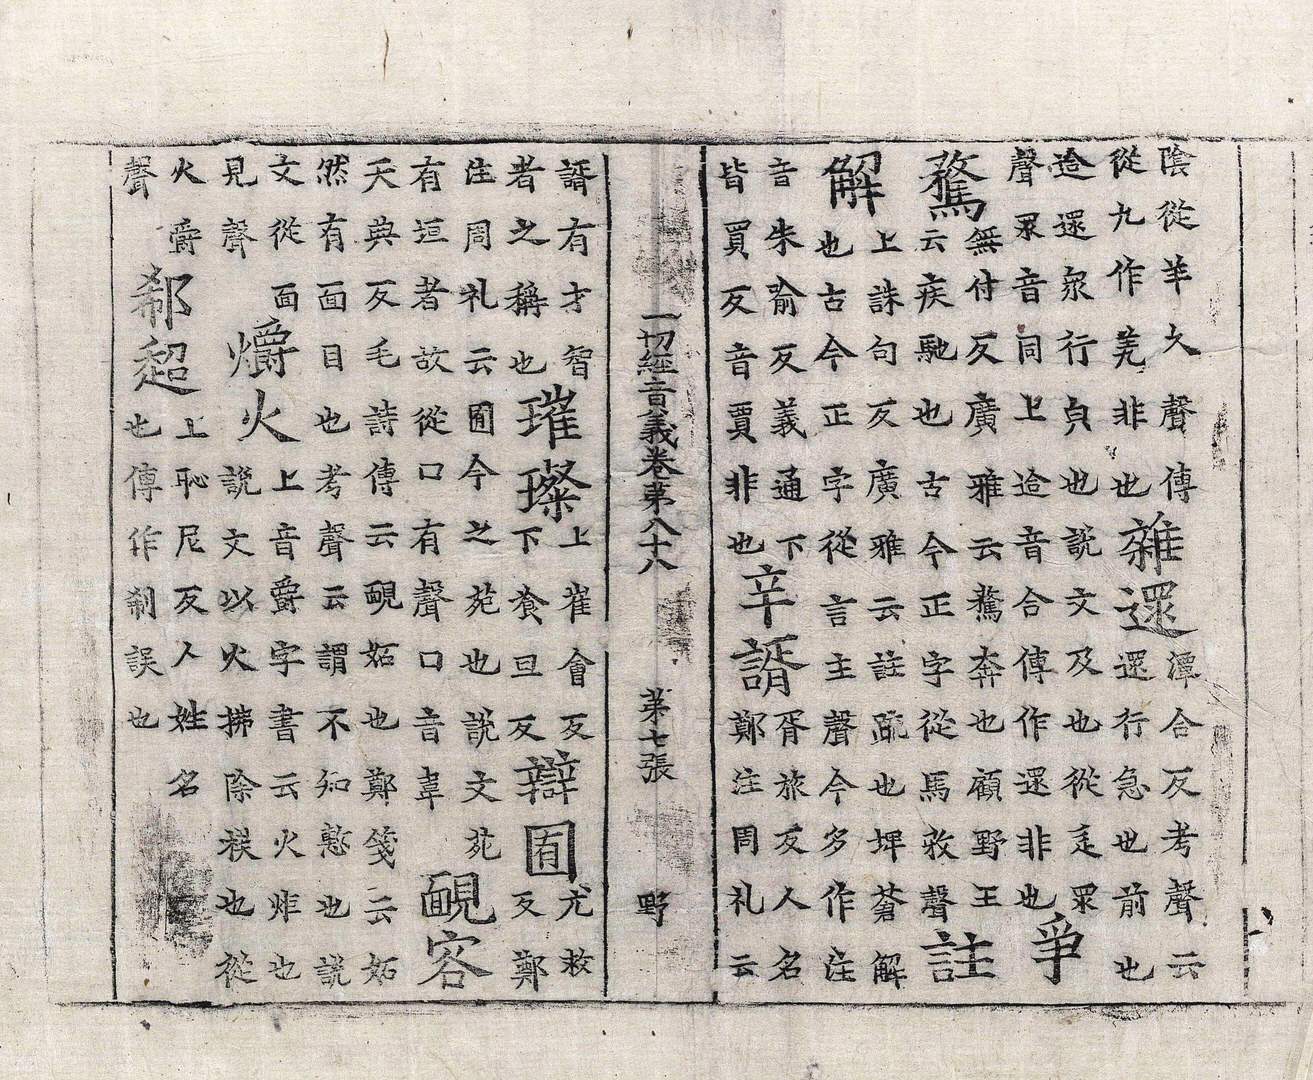 陰從羊久聲傳
從九作羗非也
雜遝
潭合反考聲云
遝行急也前也
迨遝衆行皃也說文及也從辵眔
聲眔音同上迨音合傳作還非也
爭
騖
無付反廣雅云騖奔也顧野王
云疾馳也古今正字從馬敄聲
註
解
上誅句反廣雅云註疏也埤蒼解
也古今正字從言主聲今多作注
音朱喻反義通下
皆買反音賈非也
辛諝
胥旅反人名
鄭注周礼云
一切經音義卷第八十八 第七張 野
諝有才智
者之稱也
璀璨
上崔會反
下飡旦反
辯囿
尤救
反鄭
注周礼云囿今之苑也說文苑
有垣者故從口有聲口音韋
靦容
天典反毛詩傳云靦姡也鄭箋云姡
然有面目也考聲云謂不知慙也說
文從面
見聲
爝火
上音爵字書云火炬也
說文以火拂除祆也從
火爵
聲
郗超
上恥尼反人姓名
也傳作刹誤也